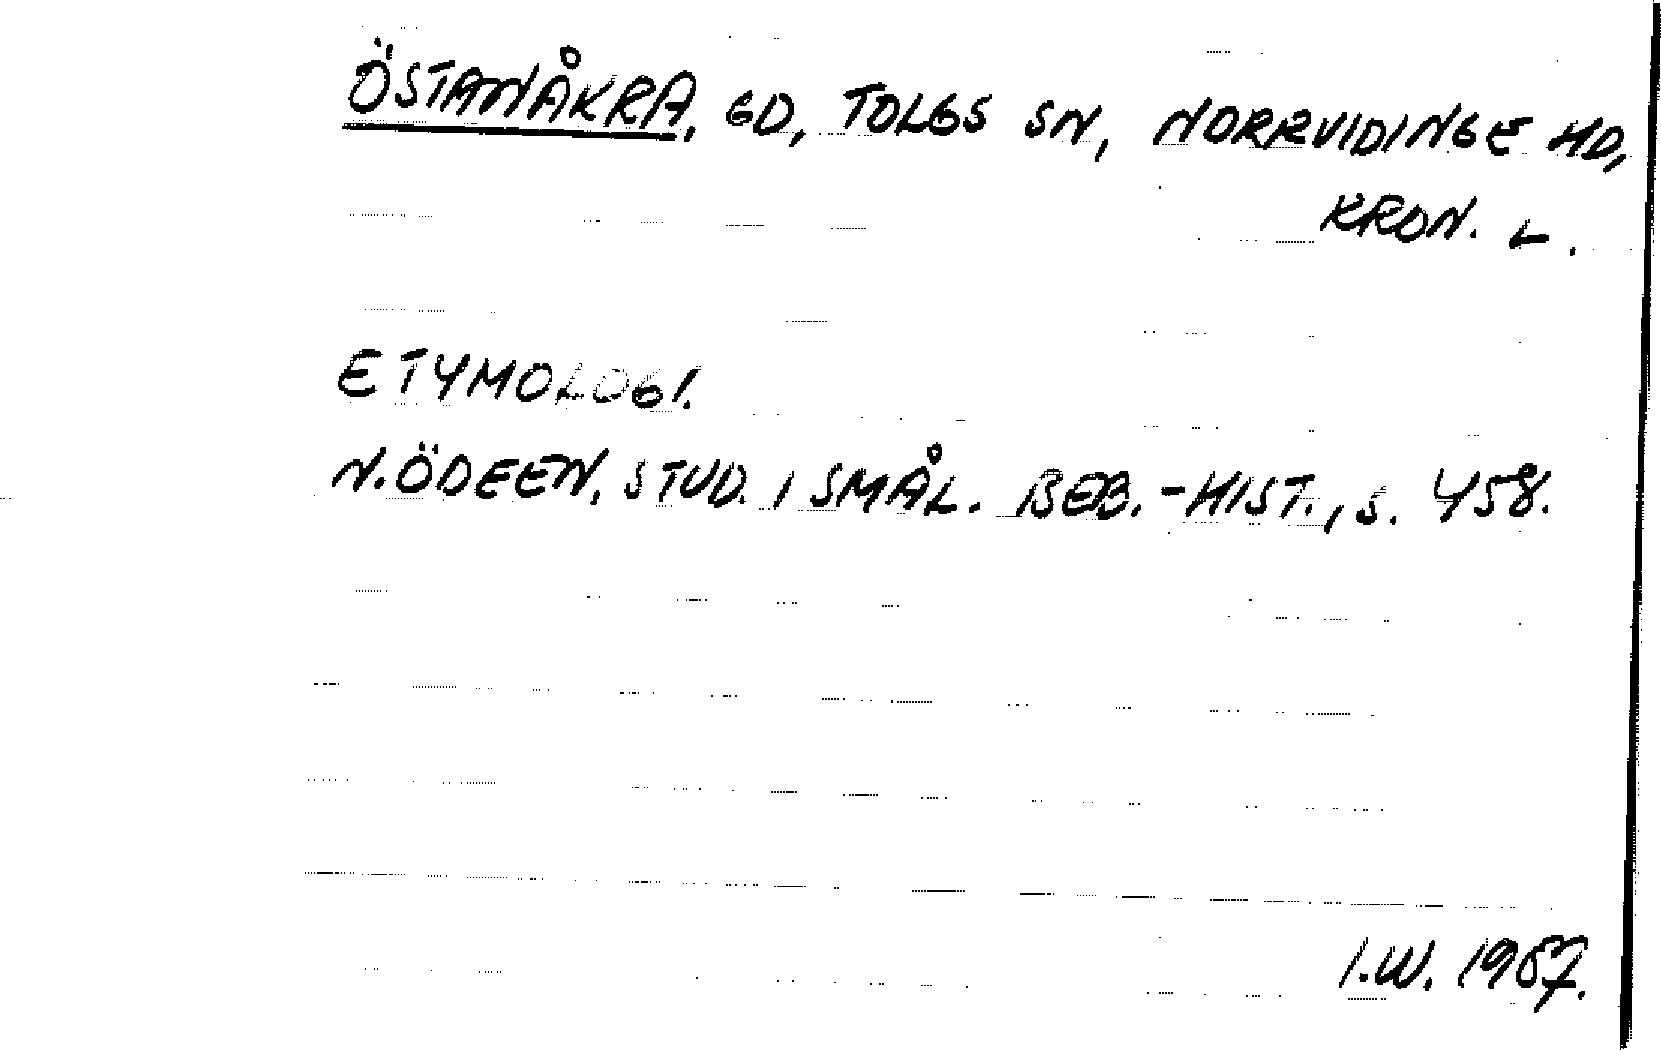 ÖSTANÅKRA, GD, TOLGS SN, NORRVIDINGE HD,
KRON. L.
ETYMOLOGI.
N. ÖDEEN, STUD. I SMÅL. BEB.-HIST., S. 458.
I.W. 1967.